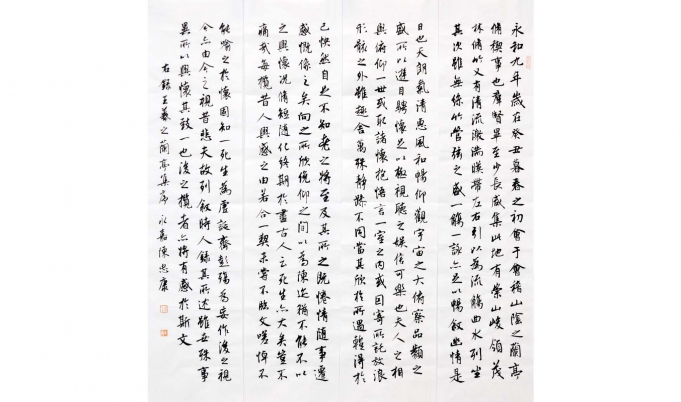 永和九年歲在癸丑暮春之初會于會稽山陰之蘭亭
脩稧事也羣賢畢至少長咸集此地有崇山峻領茂
林脩竹又有清流激湍暎帶左右引以為流觴曲水列坐
其次雖無絲竹管弦之盛一觴一詠亦足以暢敘幽情是
日也天朗氣清惠風和暢仰觀宇宙之大俯察品類之
盛所以遊目騁懷足以極視聽之娛信可樂也夫人之相
與俯仰一世或取諸懷抱悟言一室之內或因寄所託放浪
形骸之外雖趣舍萬殊靜躁不同當其欣於所遇蹔得於
己怏然自足不知老之將至及其所之既惓情隨事遷
感慨係之矣向之所欣俛仰之間以為陳迹猶不能不以
之興懷況脩短隨化終期於盡古人云死生亦大矣豈不
痛哉每攬昔人興感之由若合一契未嘗不臨文嗟悼不
能喻之於懷固知一死生為虛誕齊彭殤為妄作後之視
今亦由今之視昔悲夫故列敘時人錄其所述雖世殊事
異所以興懷其致一也後之攬者亦將有感於斯文
右錄王羲之蘭亭集序 永嘉陳忠康